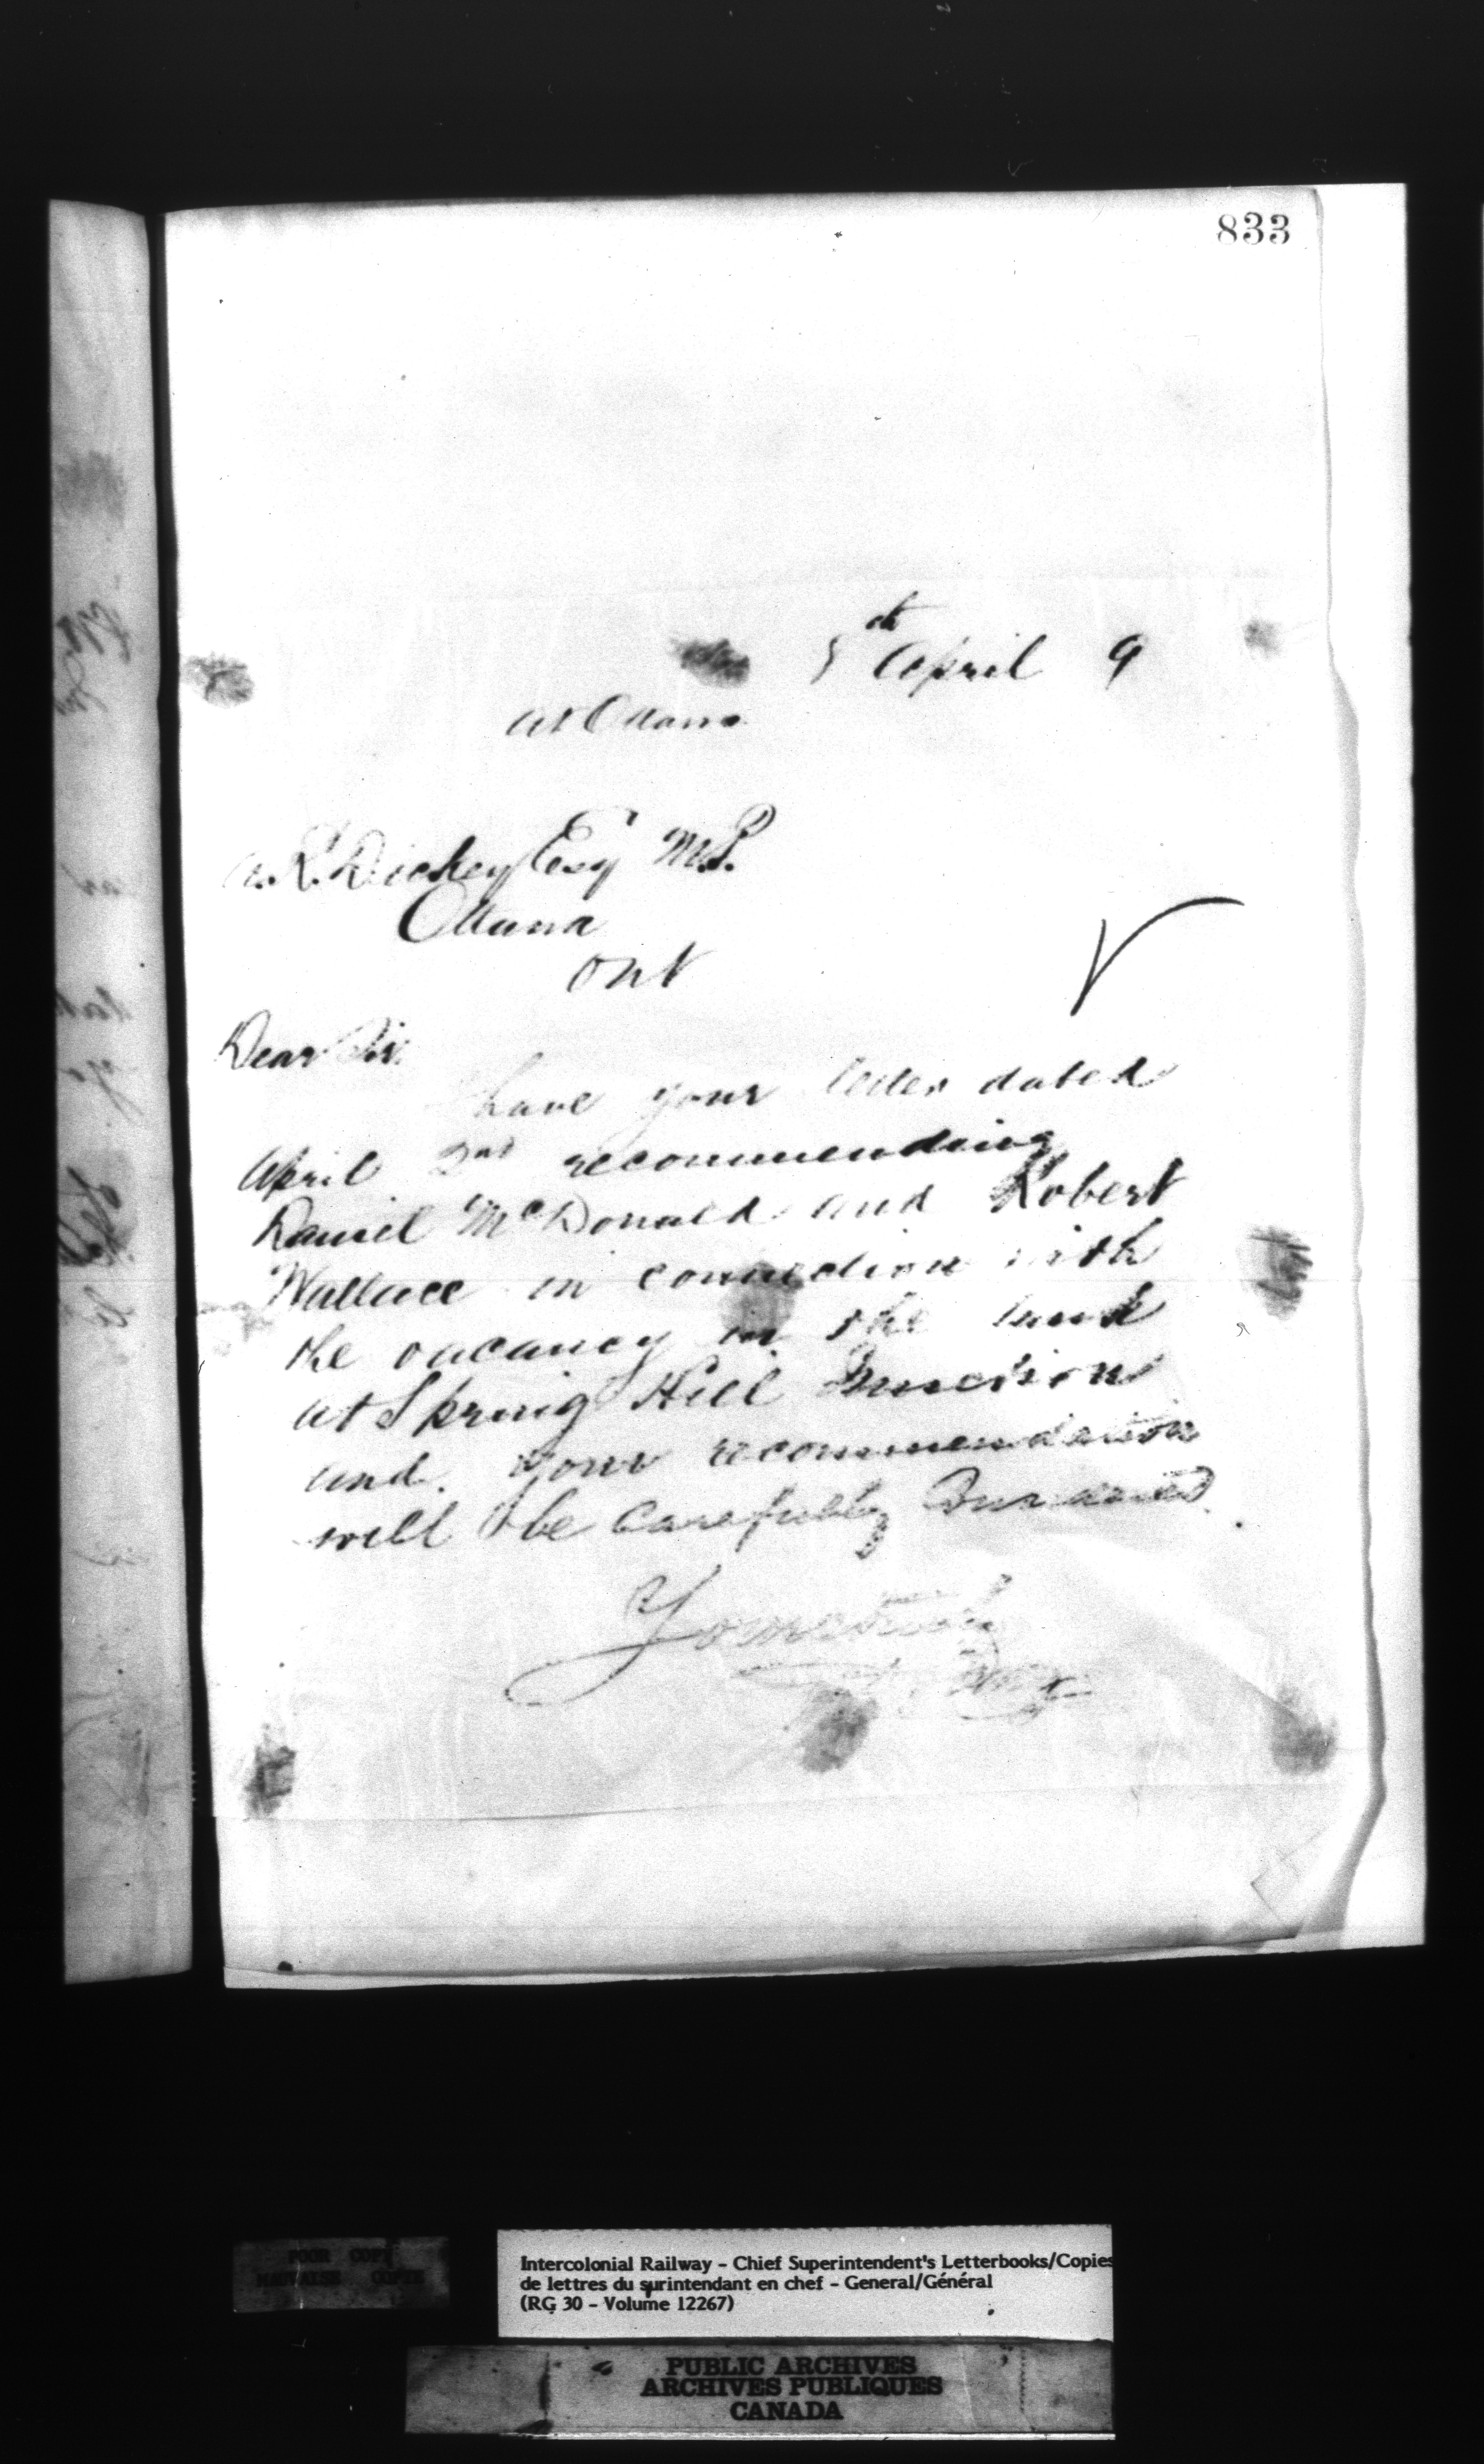 833
5th April 9
at Ottawa
A. R. Dickey Esq M.P.
Ottawa
Ont
Dear Sir
have your letter dated
April 2nd recommending
Daniel McDonald and Robert
Wallace in connection with
the vacancy in the tank
at Spring Hill Junction
and your recommendation
will be carefully considered.
Yours truly
POOR COPY
MAUVAISE COPIE
Intercolonial Railway - Chief Superintendent's Letterbooks/Copies
de lettres du surintendant en chef - General/Général
(RG 30 - Volume 12267)
PUBLIC ARCHIVES
ARCHIVES PUBLIQUES
CANADA